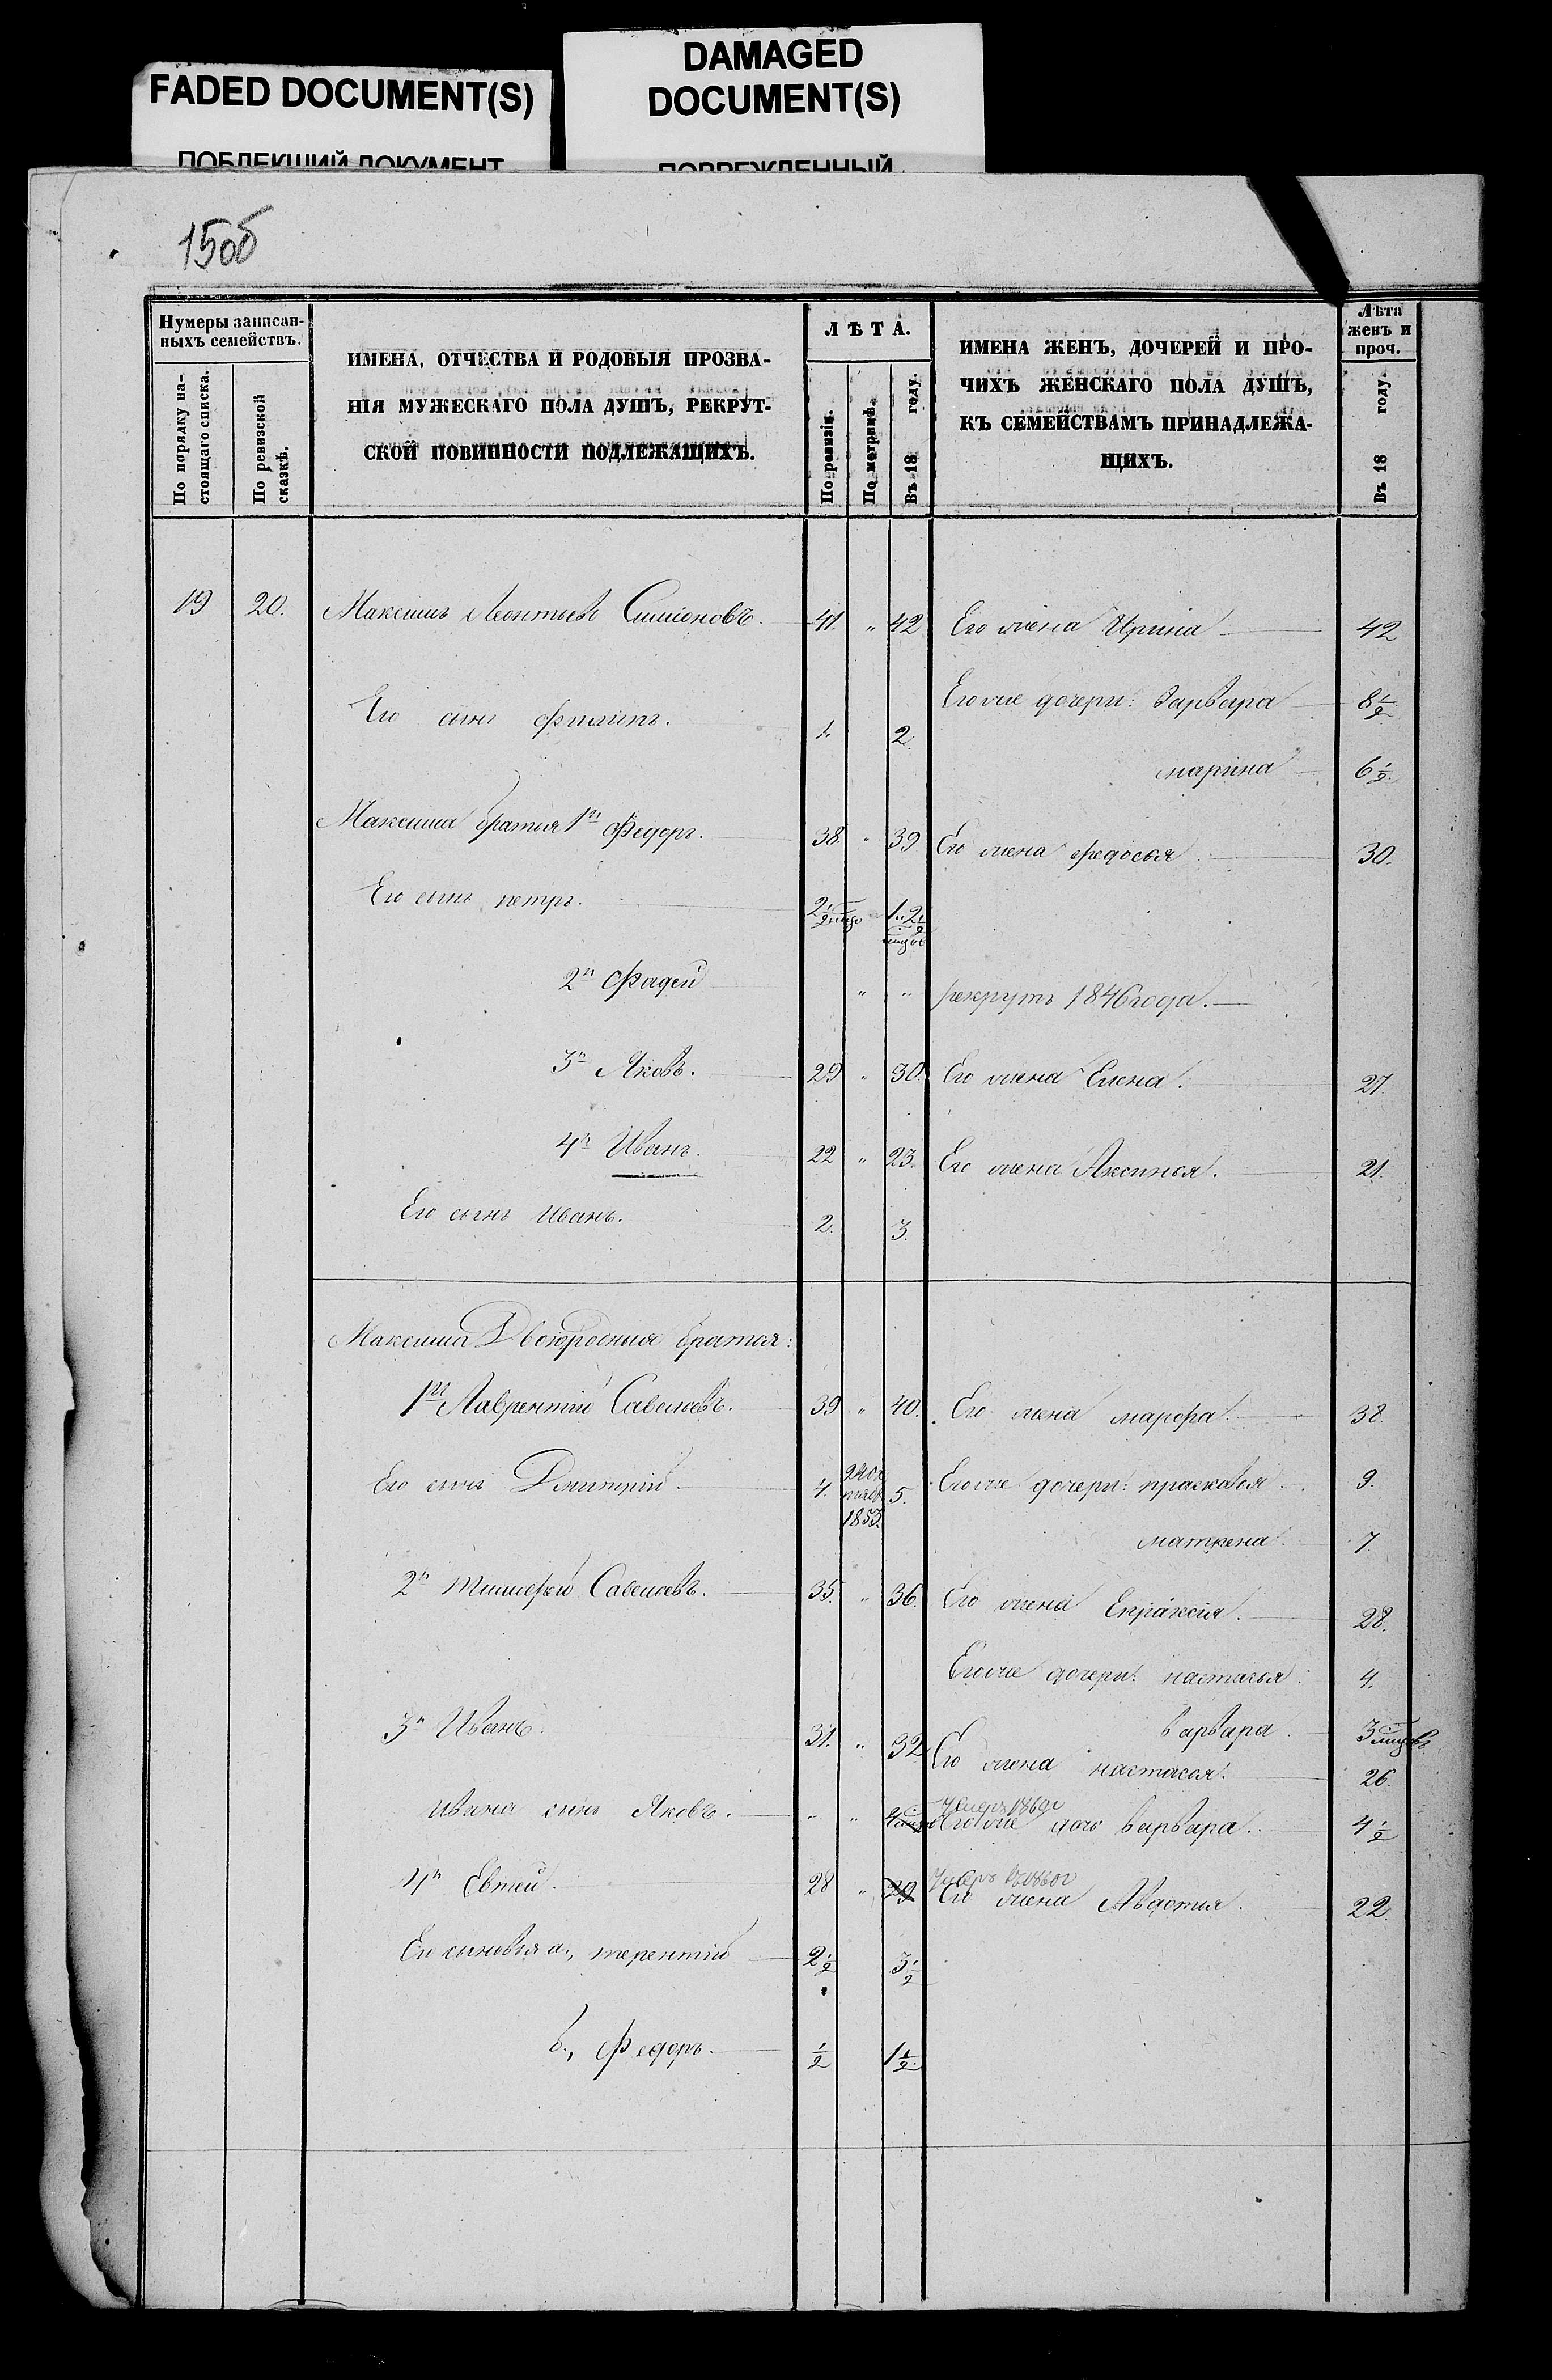 FADED DOCUMENT(S)
ПОБЛЕКШИЙ ДОКУМЕНТ
DAMAGED
DOCUMENT(S)
ПОВРЕЖДЕННЫЙ
15об
Нумеры записан-
ныхъ семействъ.
По порядку на-
стоящаго списка.
По ревизской
сказкѣ.
ИМЕНА, ОТЧЕСТВА И РОДОВЫЯ ПРОЗВА-
НІЯ МУЖЕСКАГО ПОЛА ДУШЪ, РЕКРУТ-
СКОЙ ПОВИННОСТИ ПОДЛЕЖАЩИХЪ.
ЛѢТА.
По ревизіи.
По метрикѣ.
Въ 18 году.
ИМЕНА ЖЕНЪ, ДОЧЕРЕЙ И ПРО-
ЧИХЪ ЖЕНСКАГО ПОЛА ДУШЪ,
КЪ СЕМЕЙСТВАМЪ ПРИНАДЛЕЖА-
ЩИХЪ.
Лѣта
женъ и
проч.
Въ 18 году.
19 20. Максимъ Леонтьевъ Симіоновъ. 41. " 42 Его жена Ирина 42
Его же дочери: Варвара 8 1/2
Его сынъ Филипъ. 1. 2.
марина 6 1/2.
Максима братья 1й Федоръ. 38. " 39 Его жена федосья 30.
Его сынъ петръ. 2 1/2 1. 2 1/2
2й Фадей " " рекрутъ 1846 года.
3й Яковъ. 29 " 30. Его жена Елена. 27.
4й Иванъ. 22 " 23. Его жена Аксинья. 21.
Его сынъ Иванъ. 2. 3.
Максима Двоюродныя братья:
1й Лаврентій Савельевъ. 39 " 40. Его жена марфа. 38.
Его сынъ Дмитрій. 4. 1853. 5. Его же дочери: прасковья 9.
матрена. 7.
2й Тимофей Савельевъ. 35. " 36. Его жена Епраксія. 28.
Его же дочери: настасья 4.
варвара. 3
3й Иванъ. 31. " 32 Его жена настасья. 26.
Умеръ 1860г
ивана сынъ Яковъ. " " 4 Его же дочь варвара. 4 1/2
Умеръ 1860г
4й Евтей. 28 " 29 Его жена Авдотья. 22.
Его сыновья а., терентій 2 1/2 3 1/2
б., Федоръ. 1/2 1 1/2.